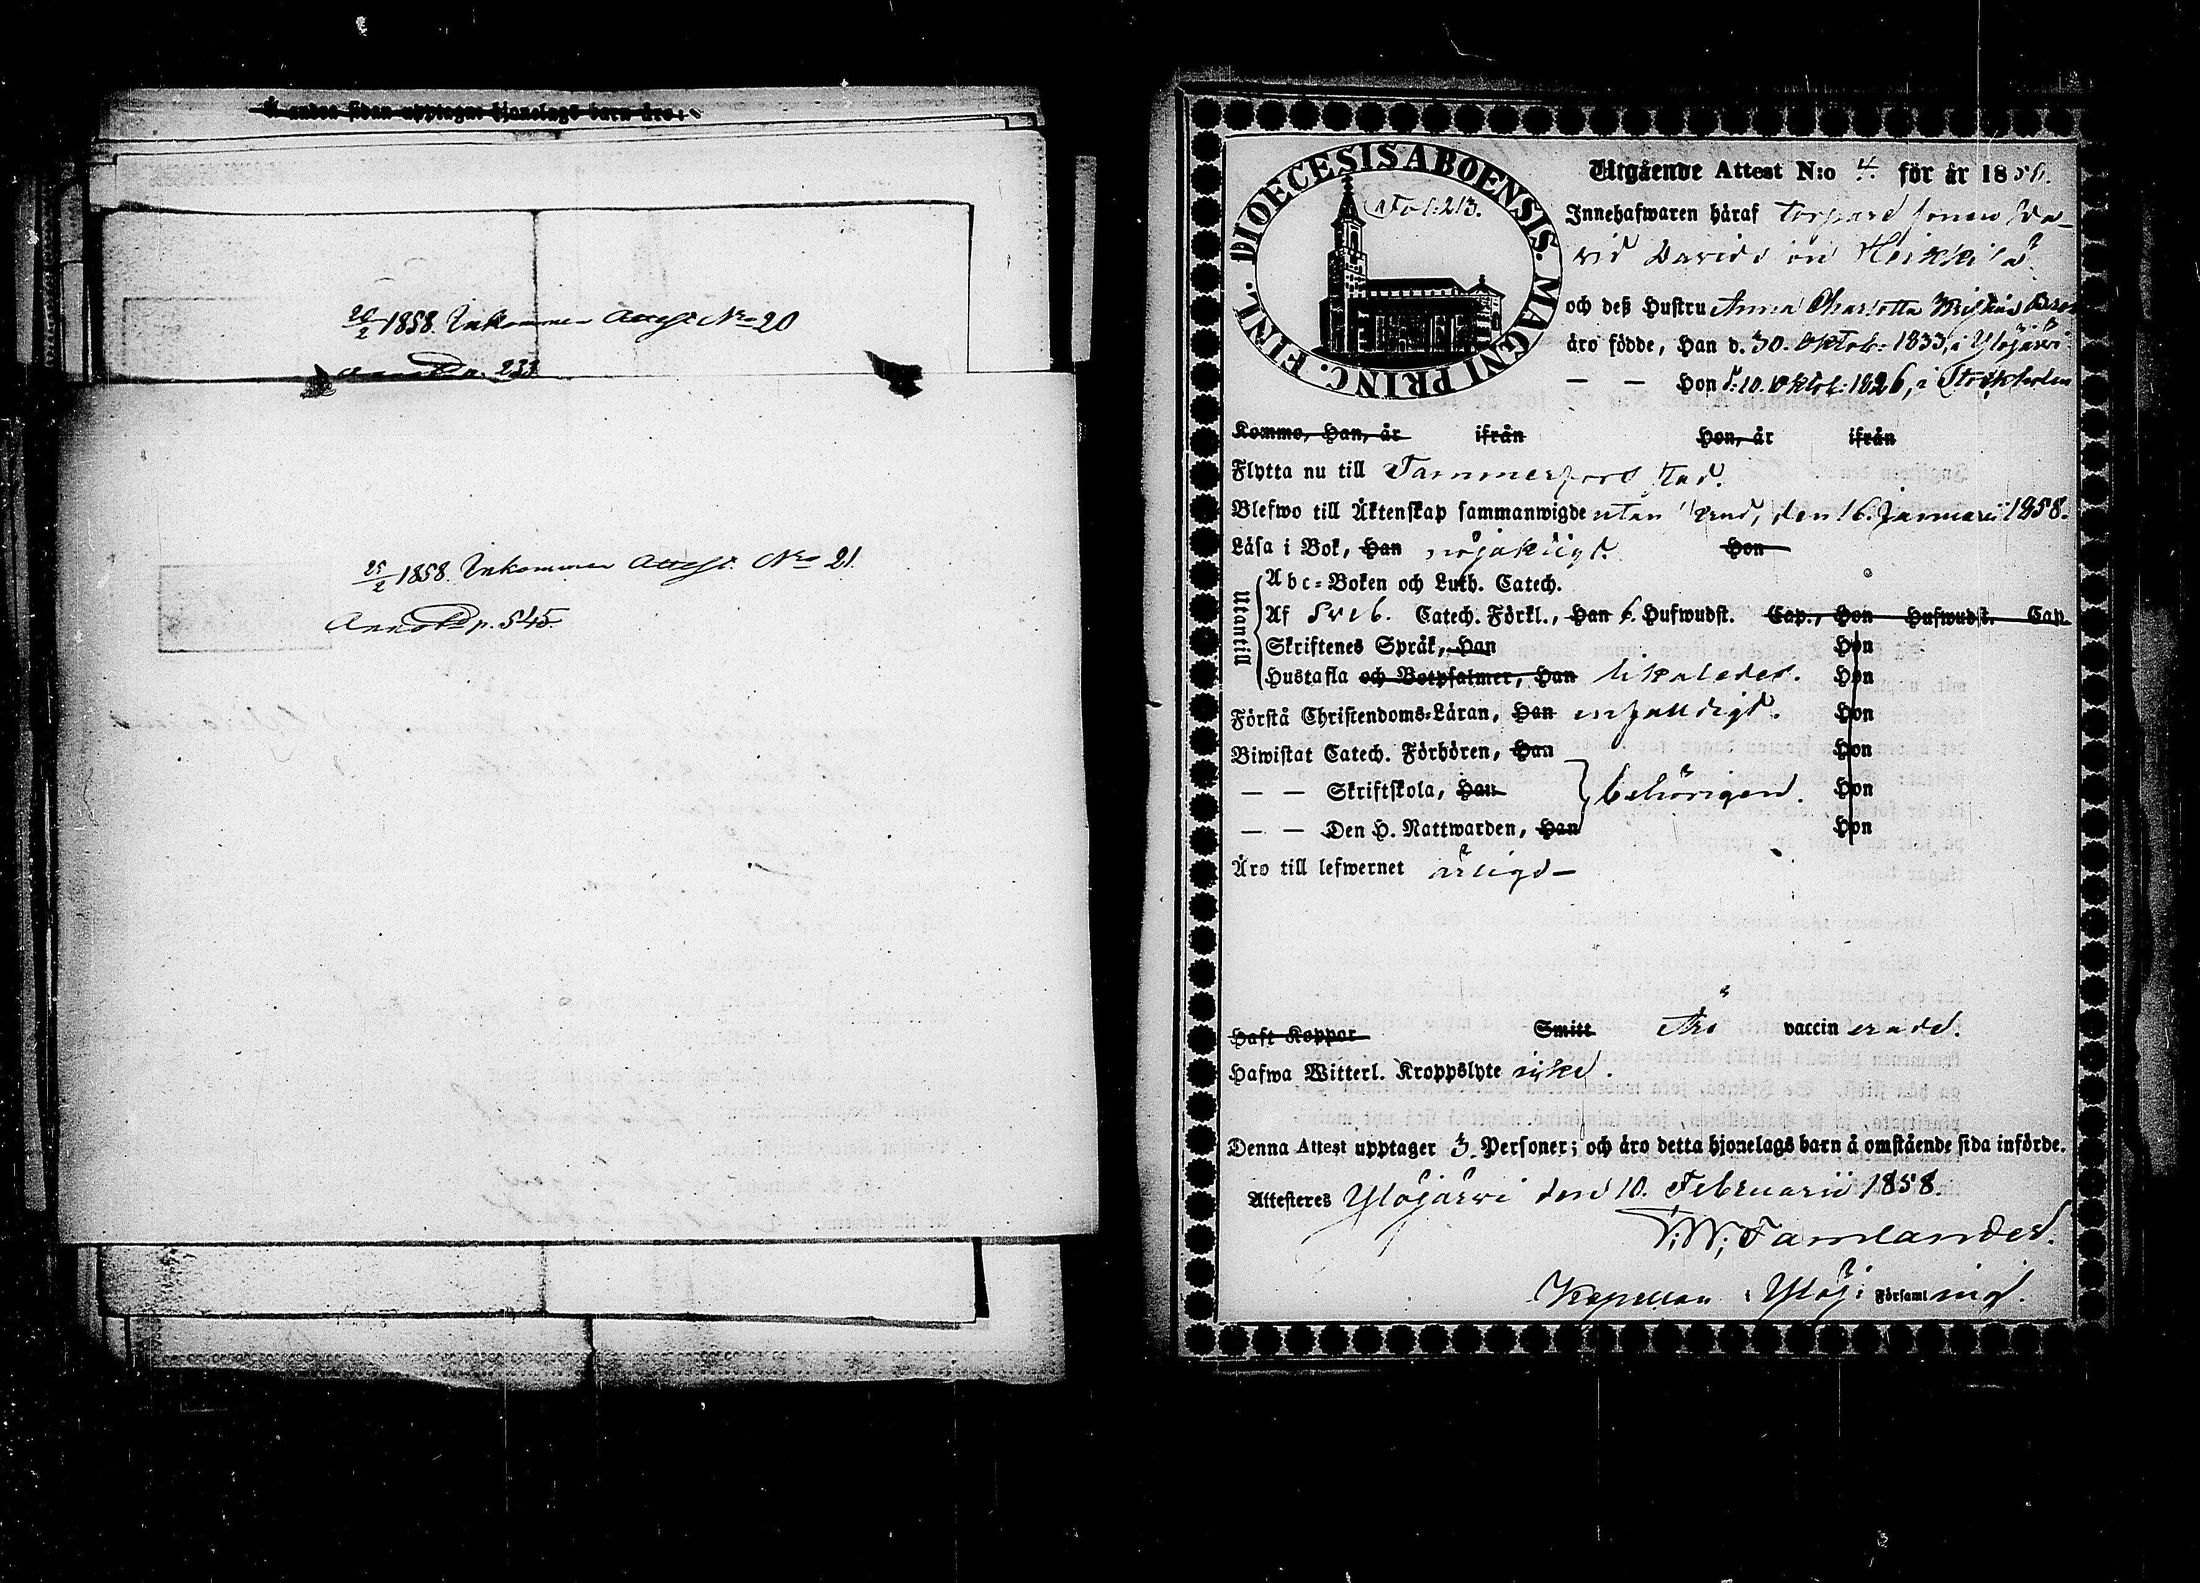 Å andra sidan upptagne hjonelags barn äro:
26/2 1858. Inkommen Attest No 20
Annot. p. 233
25/2 1858. Inkommen Attest No 21.
Annot. p. 545.
DIOECESIS ABOENSIS. MAGNI PRINC. FINL.
Fol. 213.
Utgående Attest N:o 4. för år 1858.
Innehafwaren häraf torpare sonen Da-
vid Davids son Heikkilä
och deß Hustru Anna Charlotta
äro födde, Han d. 30. Oktob: 1833, i Ylöjärvi
— — Hon d. 10. Oktob: 1826, i Stockholm
Komme, Han, år ifrån Hon, år ifrån
Flytta nu till Tammerfors stad.
Blefwo till Äktenskap sammanwigde utan den 16. Januarii 1858.
Läsa i Bok, Han nöjaktigt. Hon
Utantill
Abc-Boken och Luth. Catech.
Af Sveb. Catech. Förkl., Han 6. Hufwudst. Cap., Hon Hufwudst. Cap
Skriftenes Språk, Han Hon
Hustafla och Botpsalmer, Han likaledes. Hon
Förstå Christendoms-Läran, Han enfaldigt. Hon
Biwistat Catech. Förhören, Han Hon
— — Skriftskola, Han behörigen. Hon
— — Den H. Nattwarden, Han Hon
Äro till lefwernet ärligt —
Haft Koppor Smitt Äro vaccinerade.
Hafwa Witterl. Kroppslyte icke.
Denna Attest upptager 3. Personer; och äro detta hjonelags barn å omstående sida införde.
Attesteres Ylöjärvi den 10. Februarii 1858.
Kapellan i Ylöj: Församl